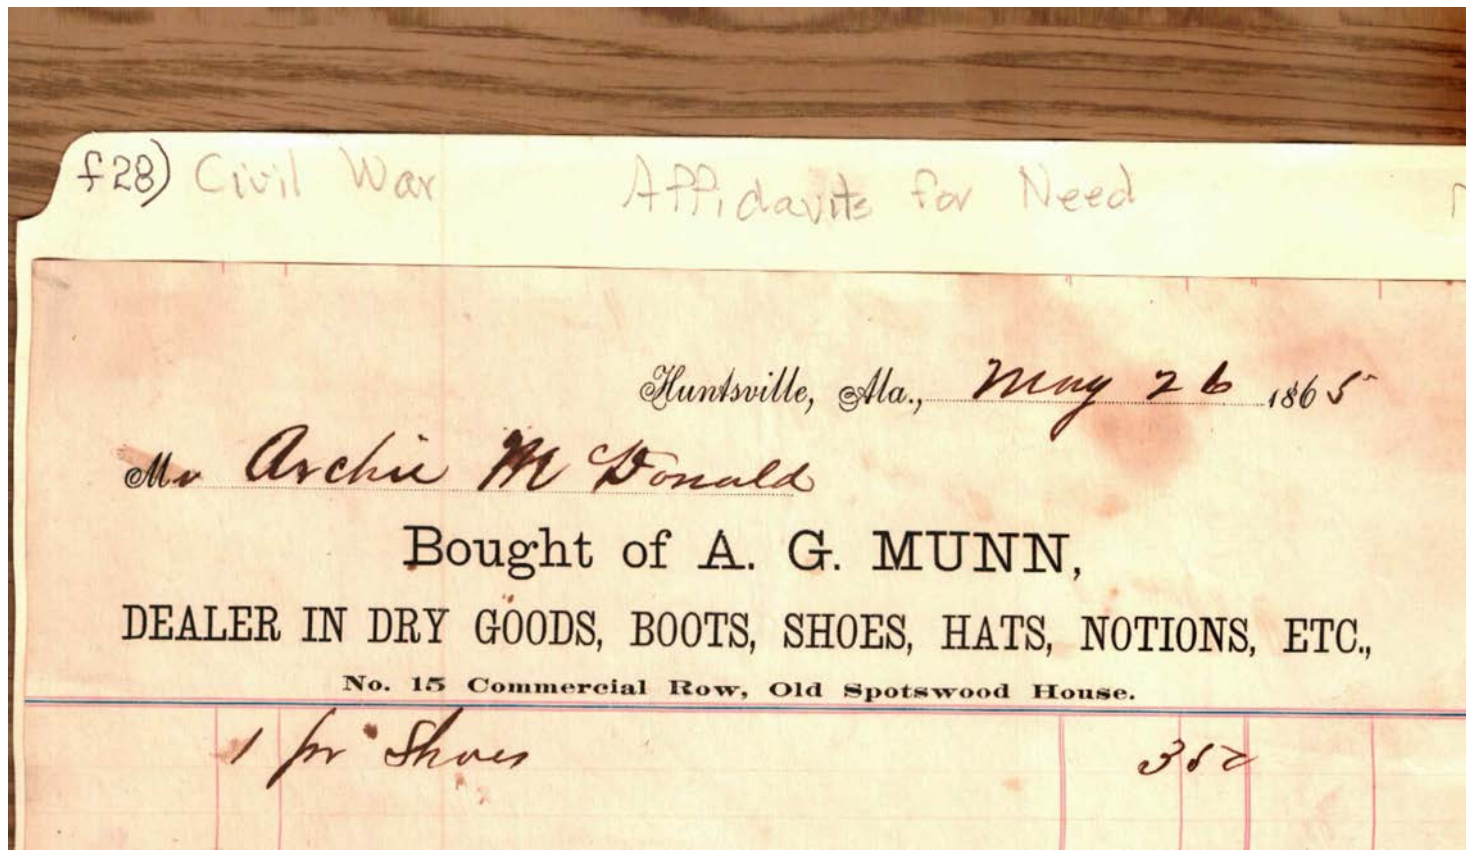 f28) Civil War Affidavits for Need
Huntsville, Ala., May 26 1865
Mr Archie McDonald
Bought of A. G. MUNN,
DEALER IN DRY GOODS, BOOTS, SHOES, HATS, NOTIONS, ETC.,
No. 15 Commercial Row, Old Spotswood House.
1 pr Shoes 350